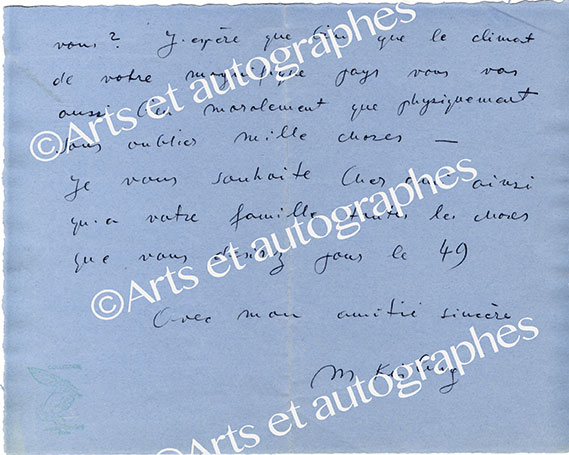 vous? J'espère que bien que le climat
de votre magnifique pays vous vas
aussi bien moralement que physiquement
sans oublier mille choses —
Je vous souhaite Cher ami ainsi
qu'a votre famille toutes les choses
que vous desirez pour le 49
Avec mon amitié sincère
M Kisling
©Arts et autographes
©Arts et autographes
©Arts et autographes